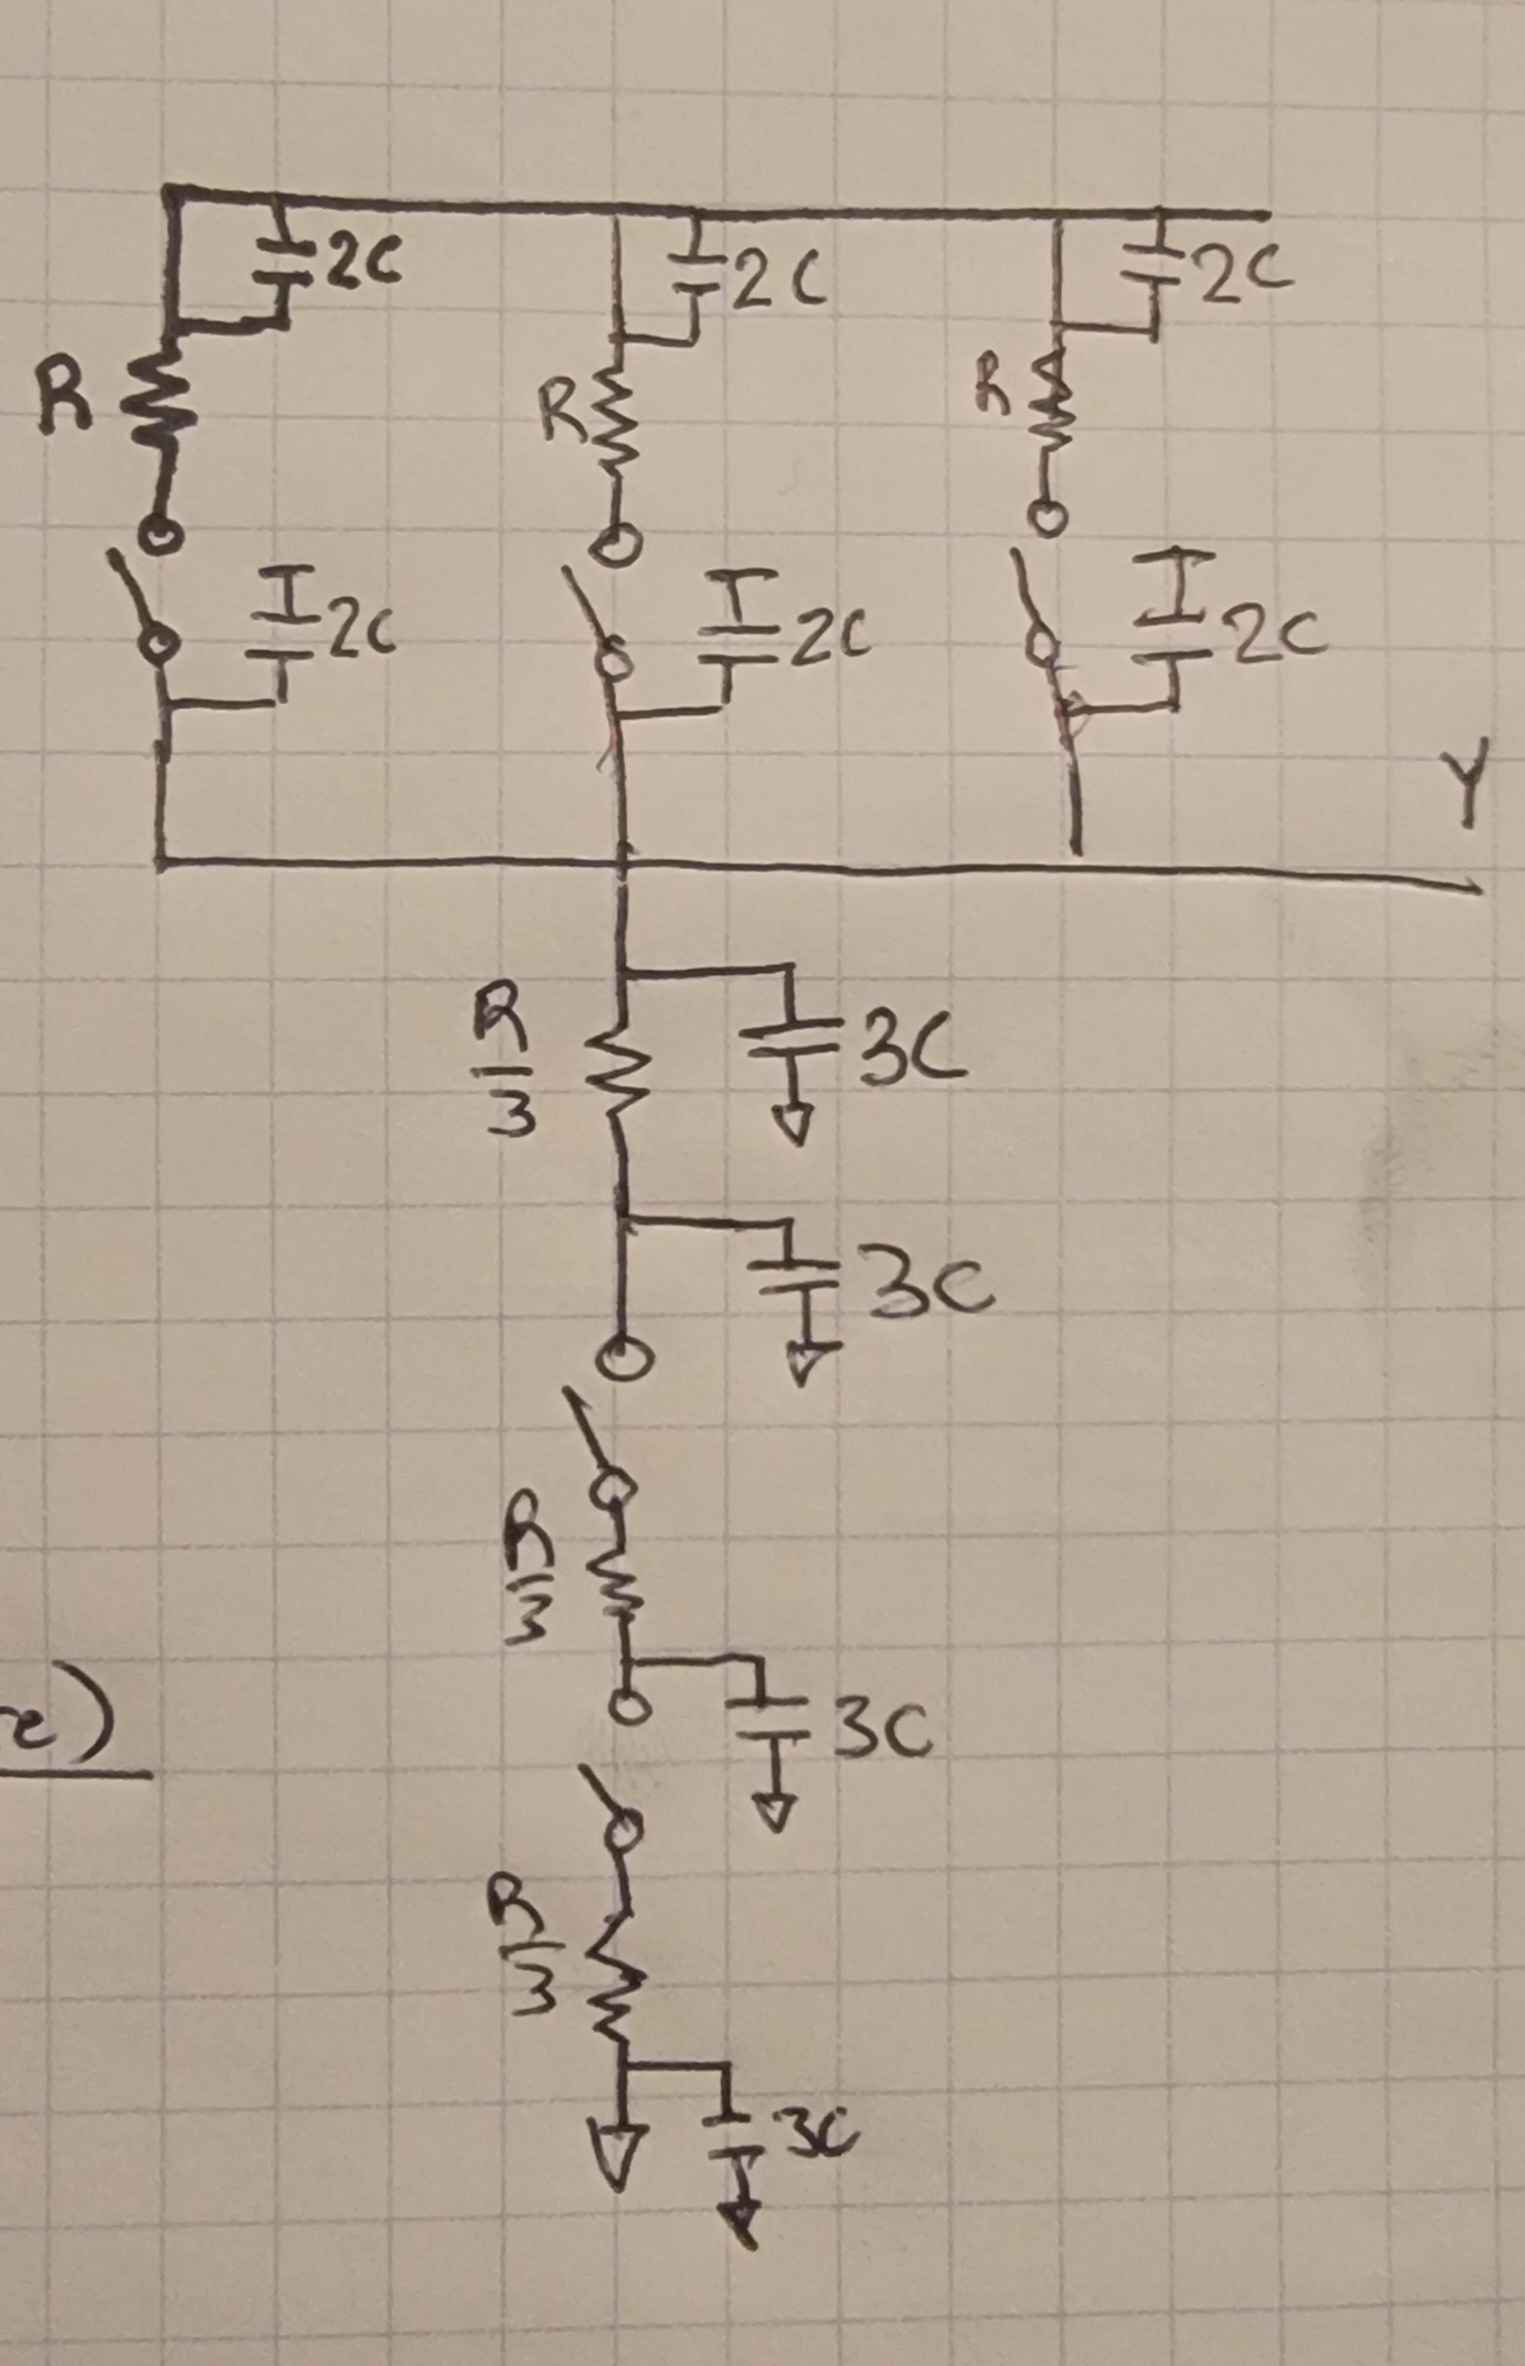 2C 2C 2C
R R R
2C 2C 2C
Y
R
3
3C
3C
R
3
3C
R
3
3C